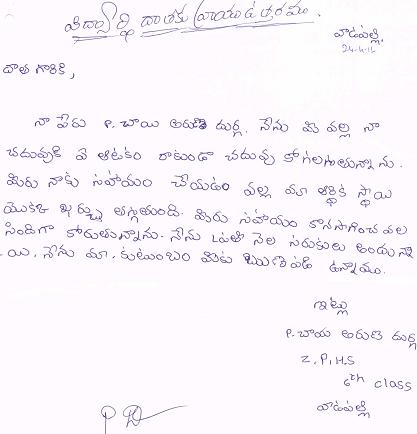 విద్యార్థి దాతకు వ్రాయు ఉత్తరము.
వాడపల్లి,
24-4-14
దాత గారికి,
నా పేరు P. చాయి అరుణ దుర్గ. నేను మీ వల్ల నా
చదువుకి ఏ ఆటకం రాకుండా చదువు కోగలుగుతున్నాను.
మీరు నాకు సహాయం చేయడం వల్ల మా ఆర్థిక స్థాయి
యొక్క ఖర్చు తగ్గుతుంది. మీరు సహాయం కొనసాగించ వల
సిందిగా కోరుతున్నాను. నేను ప్రతి నెల సరుకులు అందున్నా
యి. నేను మా. కుటుంబం మీకు ఋణపడి ఉన్నాము.
ఇట్లు
P. చాయ అరుణ దుర్గ
Z.P.H.S
6th class
వాడపల్లి